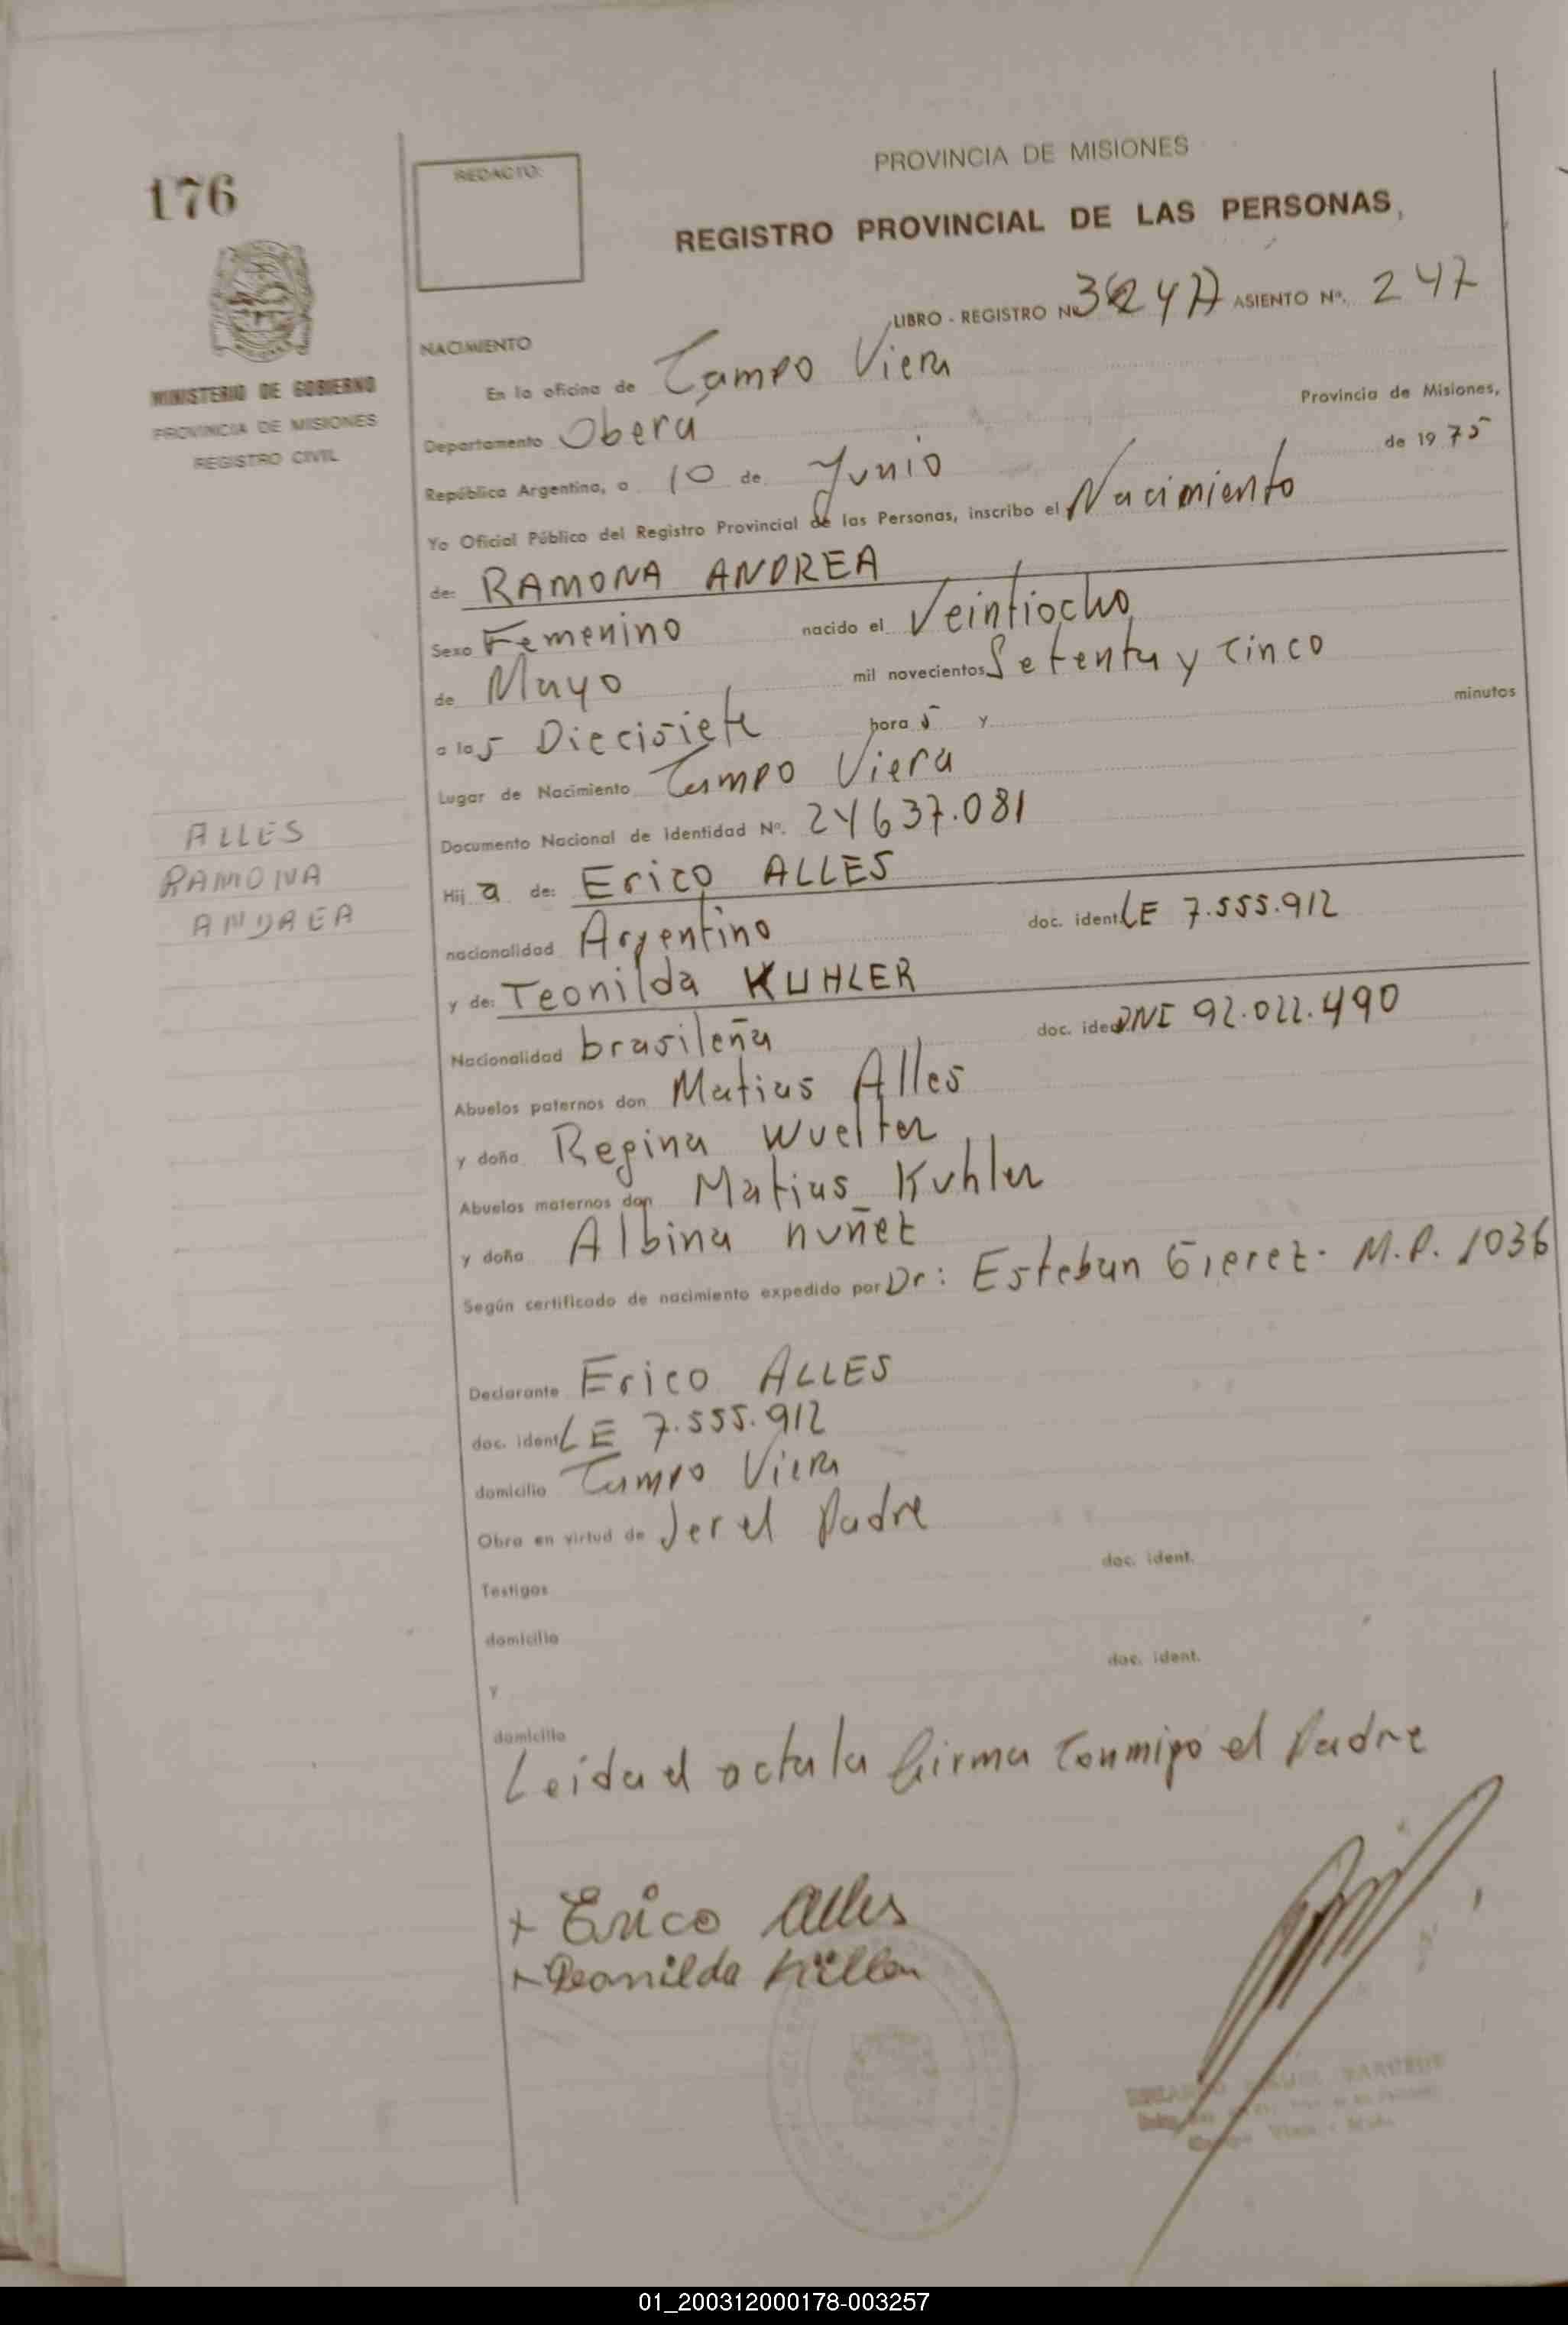 176
REDACTO:
PROVINCIA DE MISIONES
REGISTRO PROVINCIAL DE LAS PERSONAS
MINISTERIO DE GOBIERNO
PROVINCIA DE MISIONES
REGISTRO CIVIL
LIBRO - REGISTRO Nº ASIENTO Nº. 247
NACIMIENTO
En la oficina de Campo Viera
Departamento Obera Provincia de Misiones,
República Argentina, a 10 de Junio de 1975
Yo Oficial Público del Registro Provincial de las Personas, inscribo el Nacimiento
de: RAMONA ANDREA
Sexo Femenino nacido el Veintiocho
de Mayo mil novecientos Setenta y Cinco
a las Diecisiete hora s y minutos
Lugar de Nacimiento Campo Viera
Documento Nacional de Identidad Nº. 24637.081
ALLES
RAMONA
ANDREA
Hij a de: Erico ALLES
nacionalidad Argentino doc. ident. LE 7.555.912
y de: Teonilda KUHLER
Nacionalidad brasileña doc. iden DNI 92.022.490
Abuelos paternos don Matias Alles
y doña Regina Wuelter
Abuelos maternos don Matias Kuhler
y doña Albina nuñez
Según certificado de nacimiento expedido por Dr: Esteban Gierez. M.P. 1036
Declarante Erico ALLES
doc. ident LE 7.555.912
domicilio Campo Viera
Obra en virtud de Ser el Padre
doc. ident.
Testigos
domicilio
doc. ident.
y
domicilio
Leida el acta la firma Conmigo el Padre
+ Erico Alles